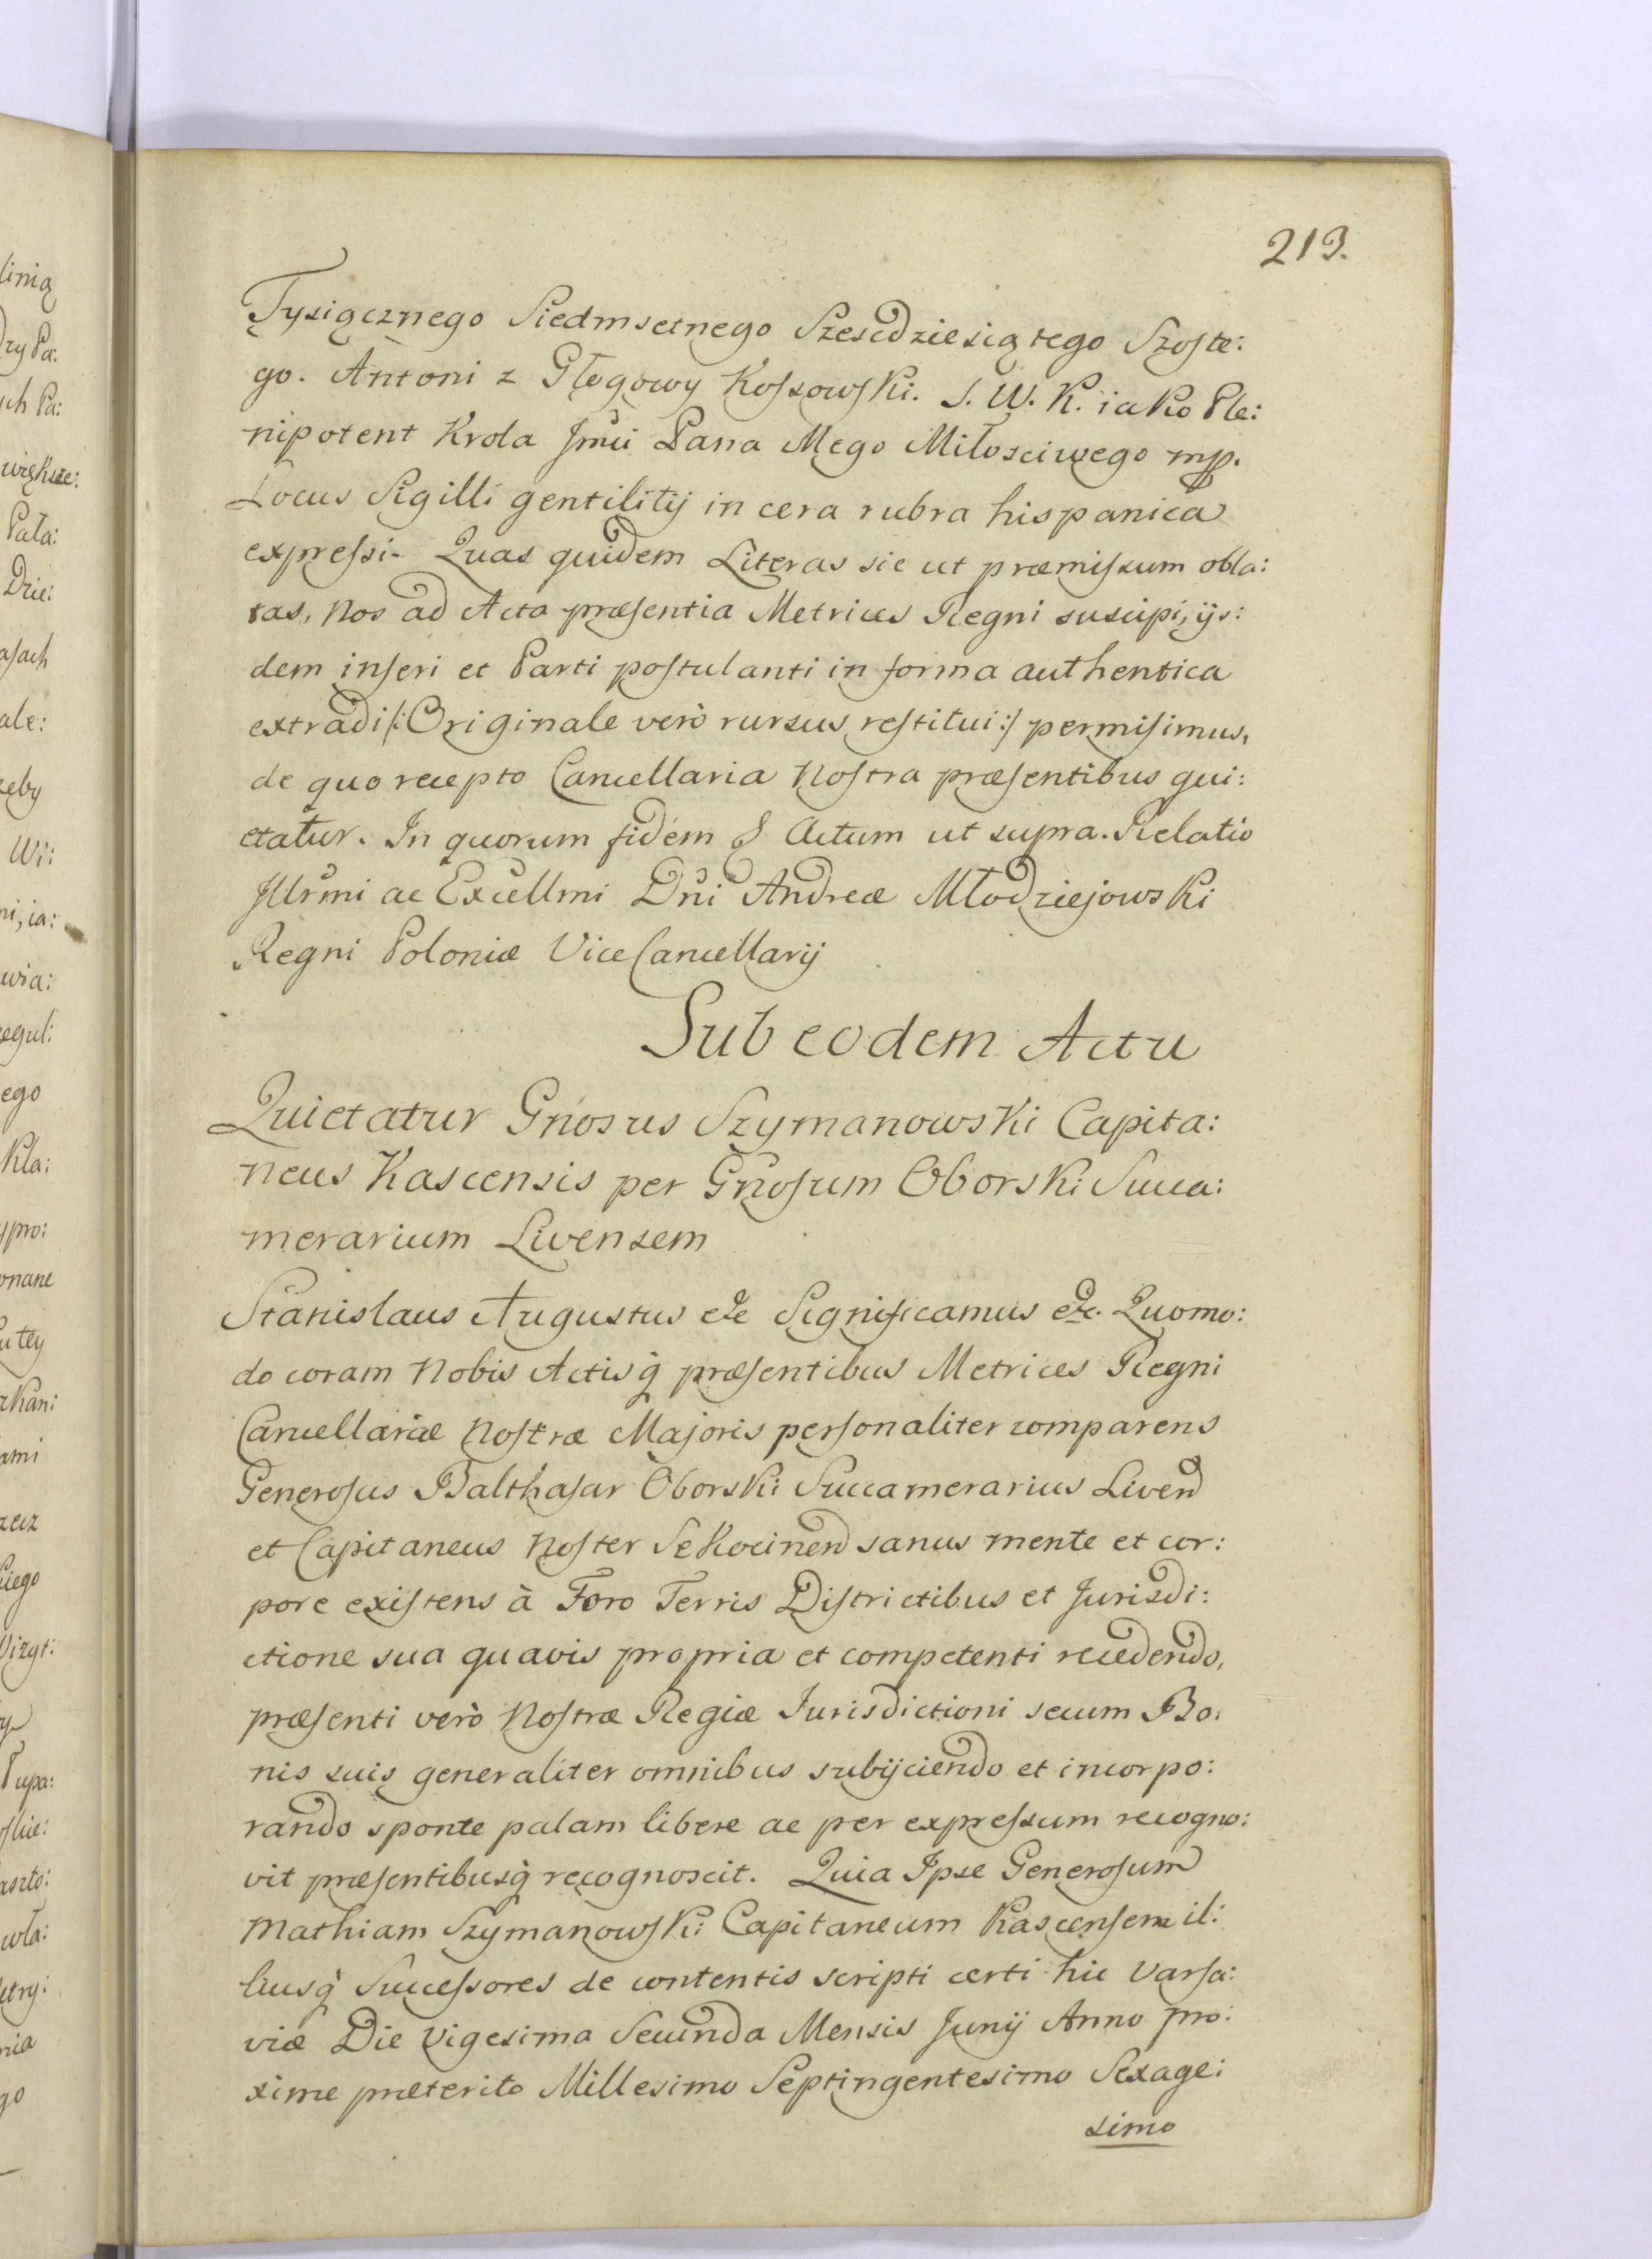 213.
Tysiącznego Siedmsetnego Szescdziesiątego Szoste:
go. Antoni z Głogowy Kossowski. S. W. K. iako Ple:
nipotent Krola Jmći Pana Mego Miłosciwego mp.
Locus Sigilli gentilitij in cera rubra hispanica
expressi. Quas quidem Literas sic ut præmissum obla:
tas, Nos ad Acta præsentia Metrices Regni suscipi, ijs:
dem inseri et Parti postulanti in forma authentica
extradi /: Originale verò rursus restitui :/ permisimus,
de quo recepto Cancellaria Nostra præsentibus qui:
etatur. In quorum fidem & Actum ut supra. Relatio
Illrmi ac Excellmi Dni Andreæ Młodziejowski
Regni Poloniæ ViceCancellarij
Sub eodem Actu
Quietatur Gnosus Szymanowski Capita:
neus Kascensis per Gnosum Oborski Succa:
merarium Livensem
Stanislaus Augustus etc Significamus etc. Quomo:
do coram Nobis Actisq præsentibus Metrices Regni
Cancellariæ Nostræ Majoris personaliter comparens
Generosus Balthasar Oborski Succamerarius Liven
et Capitaneus Noster Sekocinen sanus mente et cor:
pore existens à Foro Terris Districtibus et Jurisdi:
ctione sua quavis propria et competenti recedendo,
præsenti verò Nostræ Regiæ Jurisdictioni secum Bo:
nis suis generaliter omnibus subijciendo et incorpo:
rando sponte palam libere ac per expressum recogno:
vit præsentibusq recognoscit. Quia Ipse Generosum
Mathiam Szymanowski Capitaneum Kascensem il:
liusq Successores de contentis scripti certi hic Varsa:
viæ Die Vigesima Secunda Mensis Junij Anno pro:
xime præterito Millesimo Septingentesimo Sexage:
simo